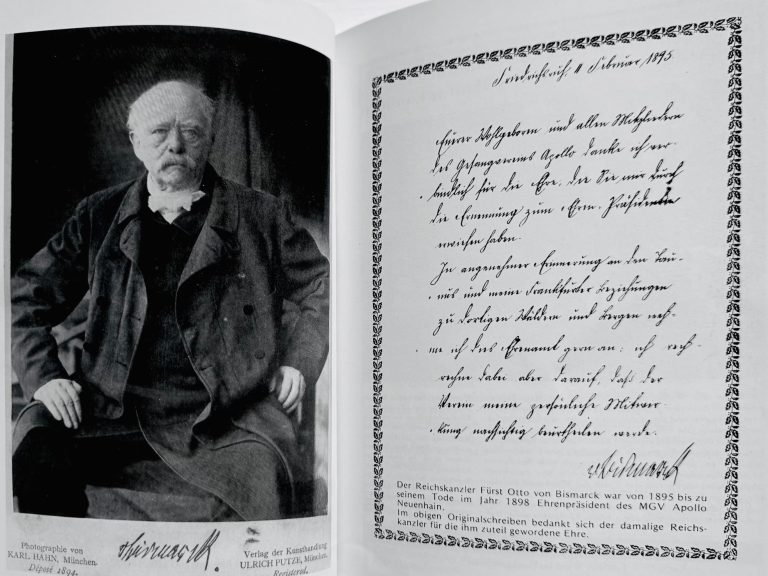 Photographie von
KARL HAHN, München.
Déposé 1894.
v Bismarck.
Verlag der Kunsthandlung
ULRICH PUTZE, München.
Registered.
Friedrichsruh, 11 Februar 1895.
Euerer Wohlgeboren und allen Mitgliedern
des Gesangvereins Apollo danke ich ver-
bindlich für die Ehre, die Sie mir durch
die Ernennung zum Ehren-Präsidenten
erwiesen haben.
In angenehmer Erinnerung an den Tau-
nus und meine Frankfurter Beziehungen
zu dortigen Wäldern und Bergen neh-
me ich das Ehrenamt gern an; ich rech-
rechne dabei aber darauf, daß der
Verein meine persönliche Mitwir-
kung nachsichtig beurtheilen werde.
v Bismarck
Der Reichskanzler Fürst Otto von Bismarck war von 1895 bis zu
seinem Tode im Jahr 1898 Ehrenpräsident des MGV Apollo
Neuenhain.
Im obigen Originalschreiben bedankt sich der damalige Reichs-
kanzler für die ihm zuteil gewordene Ehre.